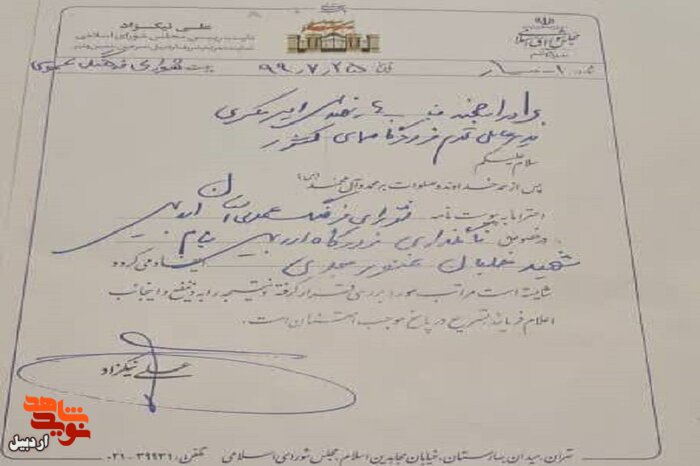 علی نیکزاد
نایب رییس مجلس شورای اسلامی
شماره ۱۰۰-
تاریخ ۹۹،۷،۲۵
پیوست شورای فرهنگ عمومی
برادر ارجمند جناب مهندس امیر مکری
مدیر عامل محترم فرودگاههای کشور
سلام علیکم
پس از حمد خداوند و صلوات بر محمد و آل محمد (ص)
احتراماً به پیوست نامه شورای فرهنگ عمومی استان اردبیل
درخصوص نامگذاری فرودگاه اردبیل بنام
شهید خلبان غفور جدی ایفاد می گردد
شایسته است مراتب مورد بررسی قرار گرفته و نتیجه را به ذینفع و اینجانب
اعلام فرمایند تسریع در پاسخ موجب امتنان است.
علی نیکزاد
تهران، میدان بهارستان، خیابان مجاهدین اسلام، مجلس شورای اسلامی تلفن: ۳۹۹۳۱-۰۲۱
نوید شاهد
اردبیل